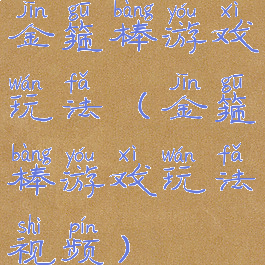 jīn gū bàng yóu xì
金箍棒游戏
wán fǎ jīn gū
玩法(金箍
bàng yóu xì wán fǎ
棒游戏玩法
shì pín
视频)